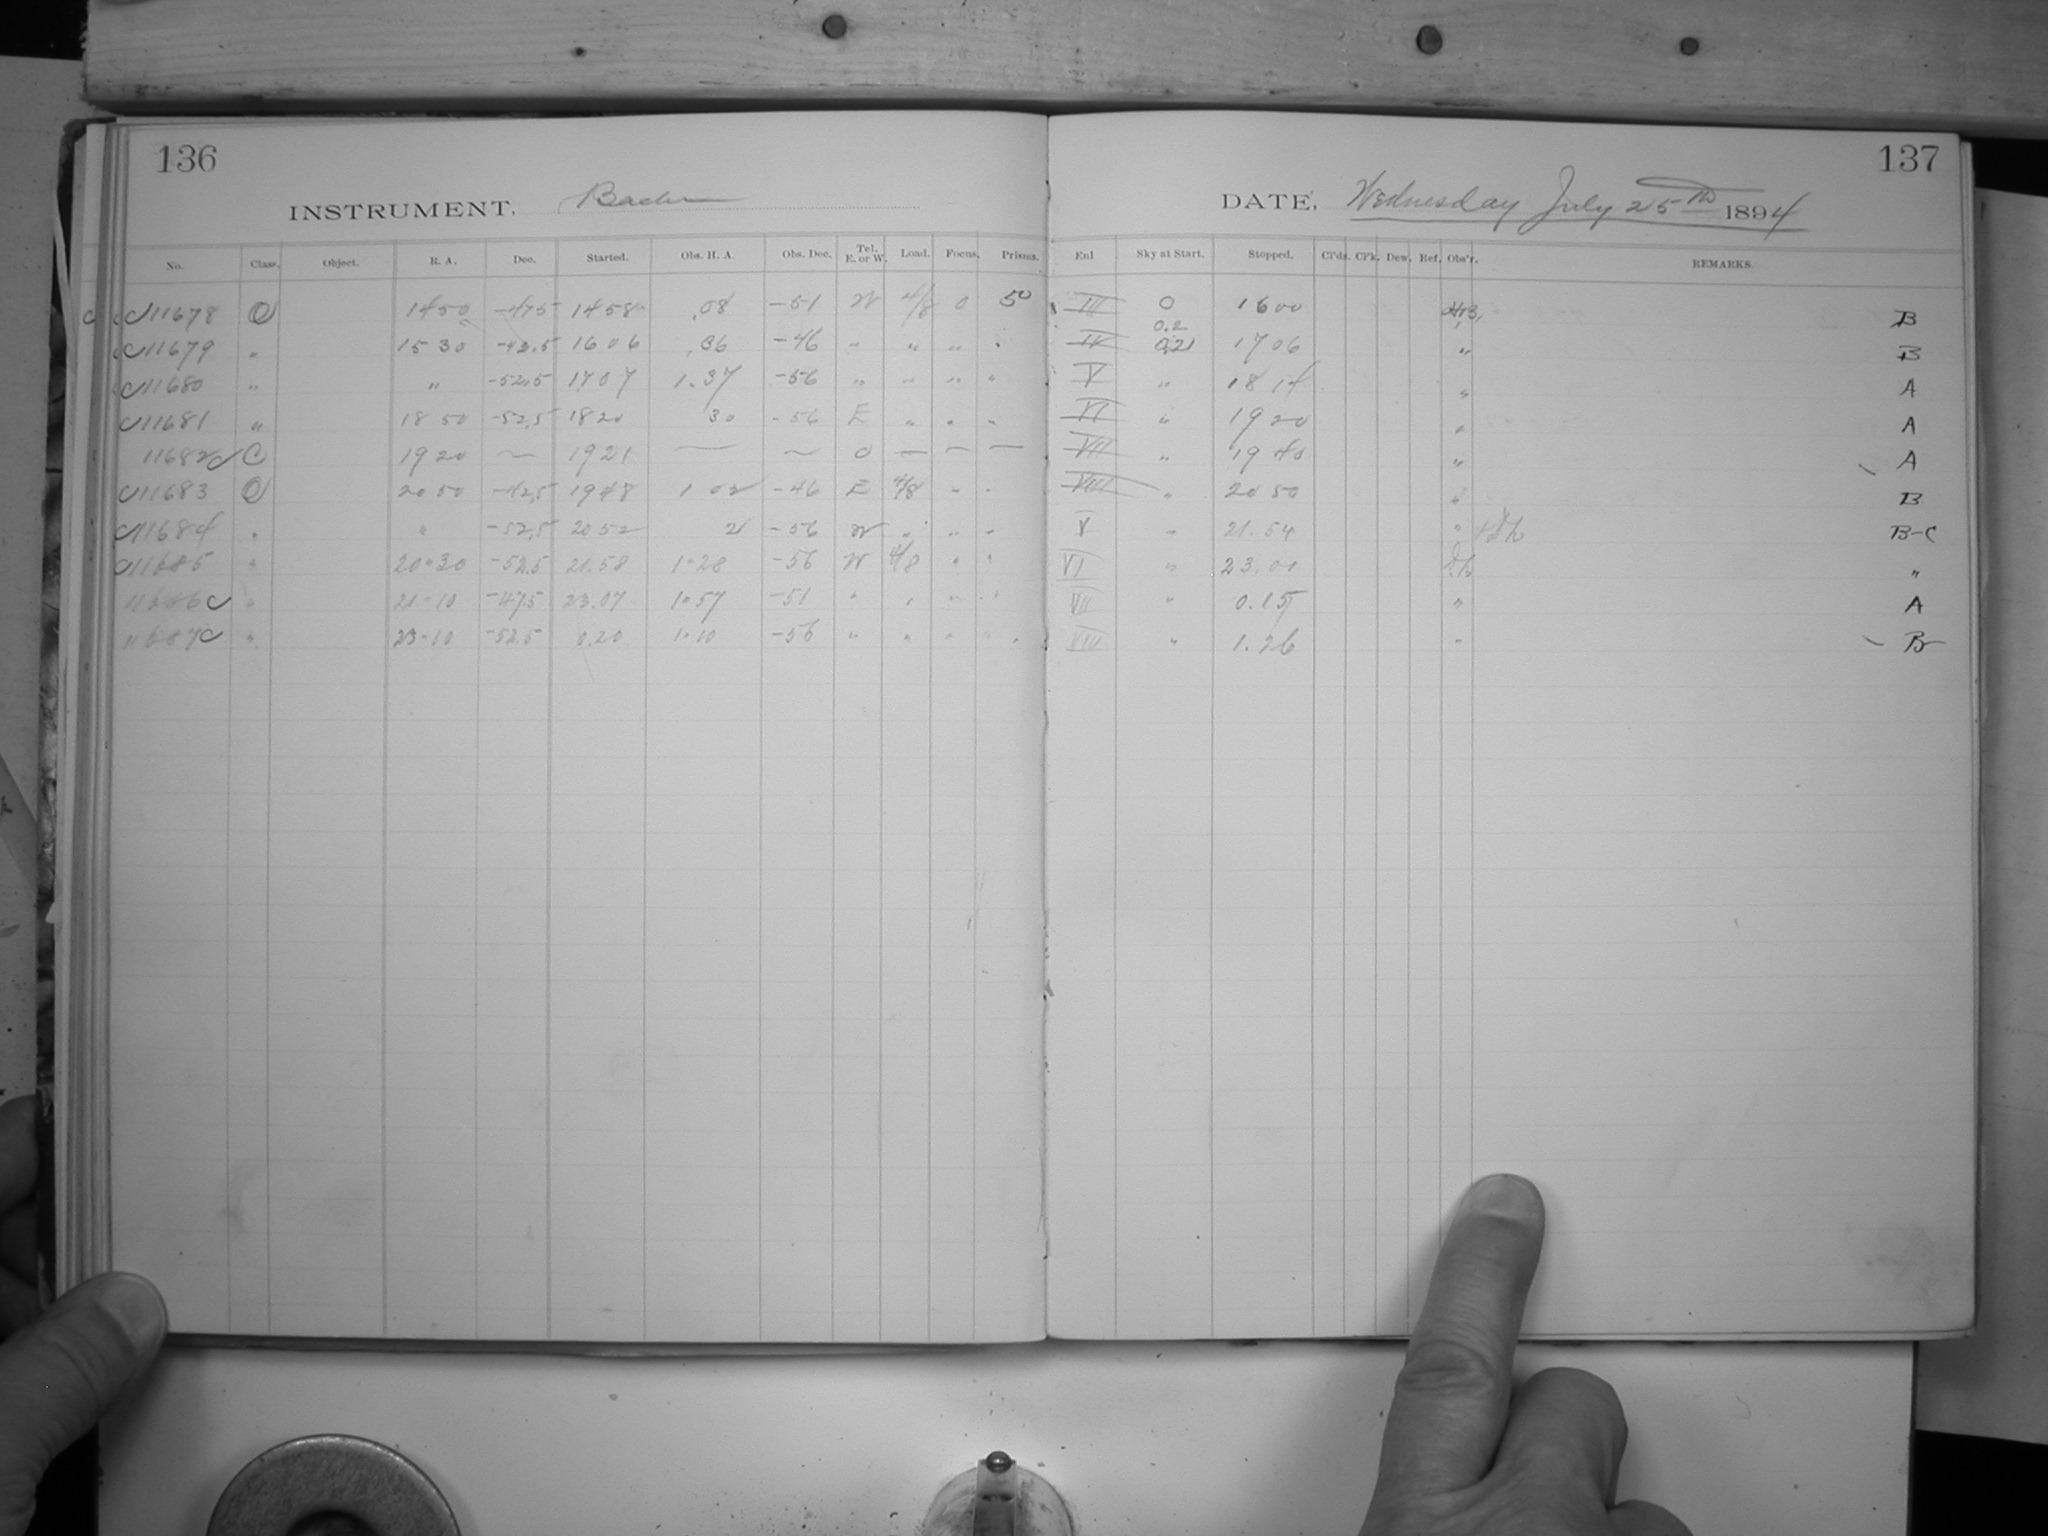 136
INSTRUMENT. Bache
No. Class. Object. R. A. Dec. Started. Obs. H. A. Obs. Dec. Tel. E. or W. Load. Focus. Prisms.
C11678 O 1450 -47.5 1458 .08 -51 W 4/8 0 50
C11679 " 15 30 -42.5 1606 .36 -46 " " " "
C11680 " " -52.5 1707 1.37 -56 " " " "
C11681 " 18 50 -52.5 1820 30 -56 E " " "
11682C C 1920 — 1921 — — 0 — — —
C11683 O 20 50 -42.5 1948 1 02 -46 E 4/8 " "
C11684 " " -52.5 2052 2 -56 W " " "
C11685 " 20-30 -52.5 21.58 1-28 -56 W 4/8 " "
11686C " 21-10 -47.5 23.07 1-57 -51 " " " "
11687C " 23-10 -52.5 0.20 1-10 -56 " " " "
137
DATE, Wednesday July 25th 1894
Enl Sky at Start. Stopped. Cl'ds. Cl'k. Dew. Ref. Obs'r. REMARKS.
III 0 1600 B
0.2
IV 0.21 1706 " B
V " 1814 " A
VI " 1920 " A
VII " 1940 " A
VIII " 2050 " B
V " 21.54 " B-C
VI " 23.01 "
VII " 0.15 " A
VIII " 1.26 " B